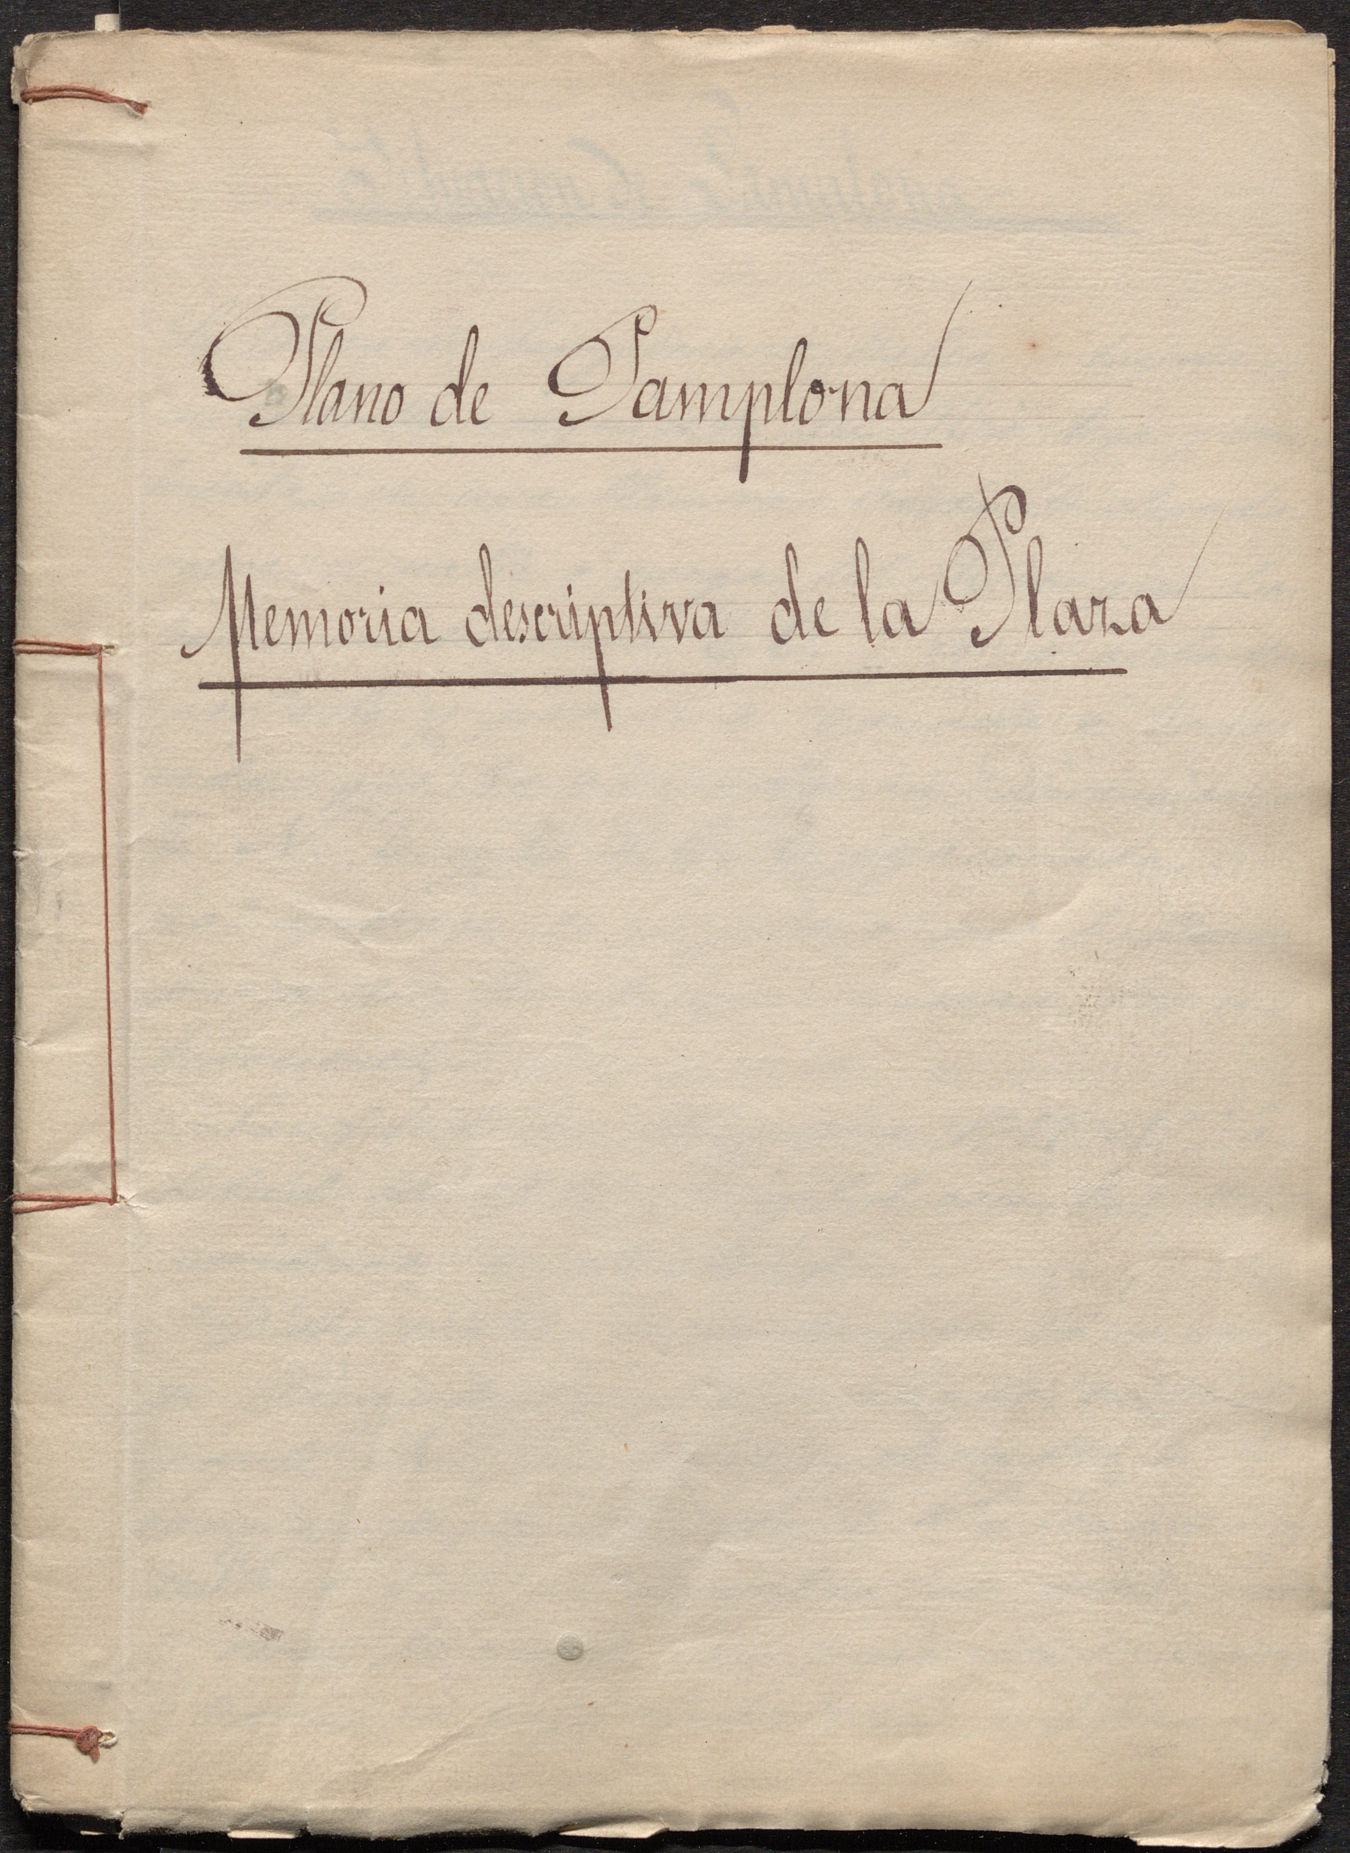 Plano de Pamplona
Memoria descriptiva de la Plaza